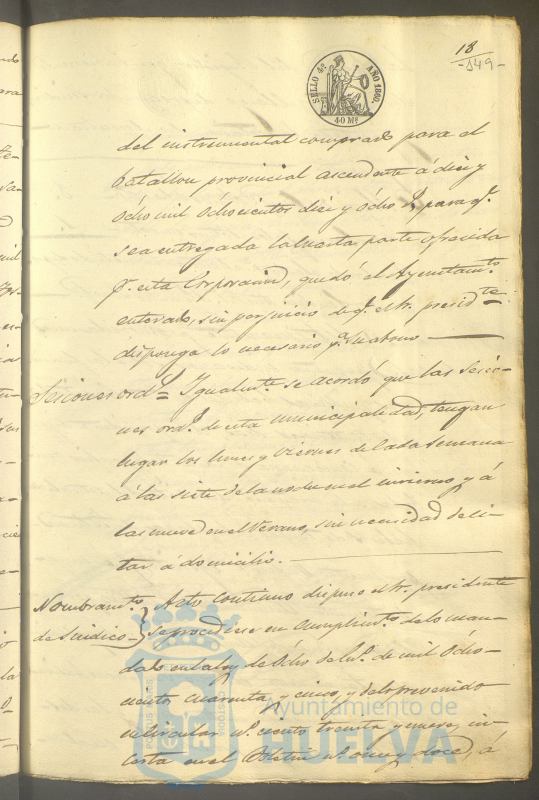 18
-149-
SELLO 4º AÑO 1860.
40 Ms
del instrumental comprado para el
batallon provincial ascendente á diez y
ócho mil óchocientos diez y ócho r para q.
sea entregada la cuarta parte ofrecida
p. esta Corporacion, quedó el Ayuntam.to
enterado, sin perjuicio de q. el Sr. presid.te
disponga lo necesario p.a su abono
Sesiones ord.s = Igualm.te se acordó que las Sesio-
nes ord.s de esta municipalidad, tengan
lugar los lunes y Viernes de Cada Semana
á las siete de la noche en el invierno y á
las nueve en el Verano, sin necesidad de ci-
tar á domicilio.
Nombram.to Acto Continuo dispuso el Sr. presidente
de Sindico Se procediese en Cumplim.to de lo man-
dado en la ley de Ócho de En.o de mil Ócho-
cientos Cuarenta y cinco, y de lo prevenido
en Circular n.o ciento treinta y nueve, in-
serta en el Boletin n.o once y doce, á
Ayuntamiento de
HUELVA